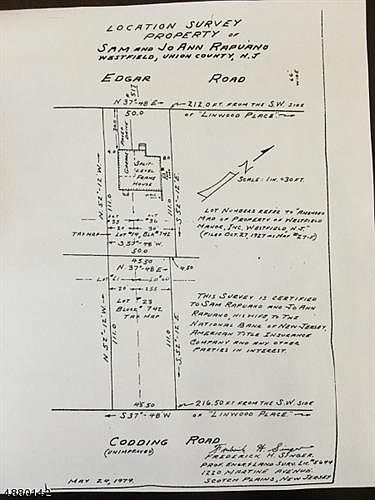 LOCATION SURVEY
PROPERTY OF
SAM AND JO ANN RAPUANO
WESTFIELD, UNION COUNTY, N.J.
EDGAR ROAD
66' WIDE
N 37°-48 E
50.0
212.0 FT. FROM THE S.W. SIDE
OF "LINWOOD PLACE"
GARAGE
SPLIT-LEVEL
FRAME
HOUSE
N 52°-12' W
111.0
S 52°-12' E
111.0
SCALE: 1 IN. = 30 FT.
LOT NUMBERS REFER TO "AMENDED
MAP OF PROPERTY OF WESTFIELD
MANOR, INC. WESTFIELD, N.J."
(FILED OCT. 27, 1927 AS MAP
TAX MAP LOT #14, BLK #742
S 37°-48' W
50.0
45.50
N 37°-48 E
4.50
LOT #23
BLOCK #742
TAX MAP
N 52°-12' W
111.0
S 52°-12' E
111.0
THIS SURVEY IS CERTIFIED
TO SAM RAPUANO AND JO ANN
RAPUANO, HIS WIFE; TO THE
NATIONAL BANK OF NEW JERSEY,
AMERICAN TITLE INSURANCE
COMPANY, AND ANY OTHER
PARTIES IN INTEREST.
45.50
S 37°-48 W
216.50 FT FROM THE S.W. SIDE
OF "LINWOOD PLACE"
CODDING ROAD
(UNIMPROVED)
Frederick H. Singer
FREDERICK H. SINGER
PROF. ENGR. & LAND SURV. LIC. #5644
1220 MARTINE AVENUE
SCOTCH PLAINS, NEW JERSEY
MAY 24, 1979.